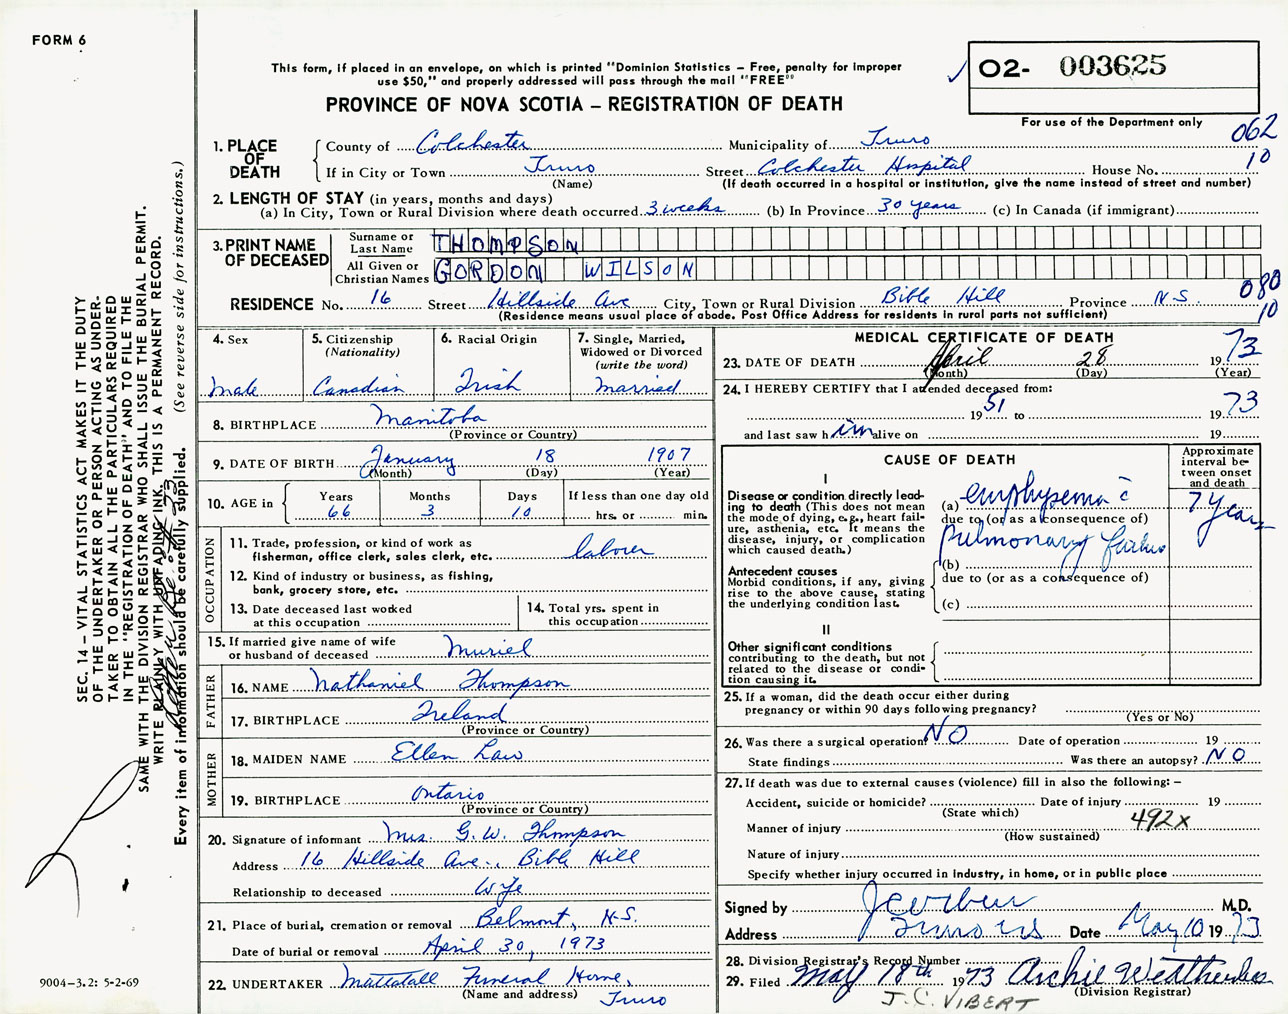 FORM 6
This form, if placed in an envelope, on which is printed "Dominion Statistics – Free, penalty for improper
use $50," and properly addressed will pass through the mail "FREE"
PROVINCE OF NOVA SCOTIA – REGISTRATION OF DEATH
02- 003625
For use of the Department only
062
10
1. PLACE OF DEATH
County of Colchester Municipality of Truro
If in City or Town Truro Street Colchester Hospital House No.
(Name) (If death occurred in a hospital or institution, give the name instead of street and number)
2. LENGTH OF STAY (in years, months and days)
(a) In City, Town or Rural Division where death occurred 3 weeks (b) In Province 30 years (c) In Canada (if immigrant)
3. PRINT NAME OF DECEASED
Surname or Last Name THOMPSON
All Given or Christian Names GORDON WILSON
080
10
RESIDENCE No. 16 Street Hillside Ave City, Town or Rural Division Bible Hill Province N.S.
(Residence means usual place of abode. Post Office Address for residents in rural parts not sufficient)
4. Sex
Male
5. Citizenship
(Nationality)
Canadian
6. Racial Origin
Irish
7. Single, Married,
Widowed or Divorced
(write the word)
Married
8. BIRTHPLACE Manitoba
(Province or Country)
9. DATE OF BIRTH January 18 1907
(Month) (Day) (Year)
10. AGE in
Years Months Days If less than one day old
66 3 10 hrs. or min.
OCCUPATION
11. Trade, profession, or kind of work as
fisherman, office clerk, sales clerk, etc. laborer
12. Kind of industry or business, as fishing,
bank, grocery store, etc.
13. Date deceased last worked
at this occupation
14. Total yrs. spent in
this occupation
15. If married give name of wife
or husband of deceased Muriel
FATHER
16. NAME Nathaniel Thompson
17. BIRTHPLACE Ireland
(Province or Country)
MOTHER
18. MAIDEN NAME Ellen Law
19. BIRTHPLACE Ontario
(Province or Country)
20. Signature of informant Mrs. G. W. Thompson
Address 16 Hillside Ave., Bible Hill
Relationship to deceased Wife
21. Place of burial, cremation or removal Belmont, N.S.
Date of burial or removal April 30, 1973
22. UNDERTAKER Mattatall Funeral Home,
(Name and address) Truro
MEDICAL CERTIFICATE OF DEATH
23. DATE OF DEATH April 28 1973
(Month) (Day) (Year)
24. I HEREBY CERTIFY that I attended deceased from:
1951 to 1973
and last saw him alive on 19
CAUSE OF DEATH
Approximate
interval be-
tween onset
and death
I
Disease or condition directly lead-
ing to death (This does not mean
the mode of dying, e.g., heart fail-
ure, asthenia, etc. It means the
disease, injury, or complication
which caused death.)
(a) emphysema c̄
due to (or as a consequence of)
Pulmonary
7 years
Antecedent causes
Morbid conditions, if any, giving
rise to the above cause, stating
the underlying condition last.
(b)
due to (or as a consequence of)
(c)
II
Other significant conditions
contributing to the death, but not
related to the disease or condi-
tion causing it.
25. If a woman, did the death occur either during
pregnancy or within 90 days following pregnancy?
(Yes or No)
26. Was there a surgical operation? NO Date of operation 19
State findings Was there an autopsy? NO
27. If death was due to external causes (violence) fill in also the following: –
Accident, suicide or homicide? Date of injury 19
(State which)
Manner of injury 492x
(How sustained)
Nature of injury
Specify whether injury occurred in industry, in home, or in public place
Signed by M.D.
Address Truro NS Date May 10 1973
28. Division Registrar's Record Number
29. Filed May 18th 1973 Archie Weatherbee
(Division Registrar)
J.C. VIBERT
SEC. 14 – VITAL STATISTICS ACT MAKES IT THE DUTY
OF THE UNDERTAKER OR PERSON ACTING AS UNDER-
TAKER TO OBTAIN ALL THE PARTICULARS REQUIRED
IN THE "REGISTRATION OF DEATH" AND TO FILE THE
SAME WITH THE DIVISION REGISTRAR WHO SHALL ISSUE THE BURIAL PERMIT.
WRITE PLAINLY WITH UNFADING INK. THIS IS A PERMANENT RECORD.
Every item of information should be carefully supplied. (See reverse side for instructions.)
9004-3.2: 5-2-69